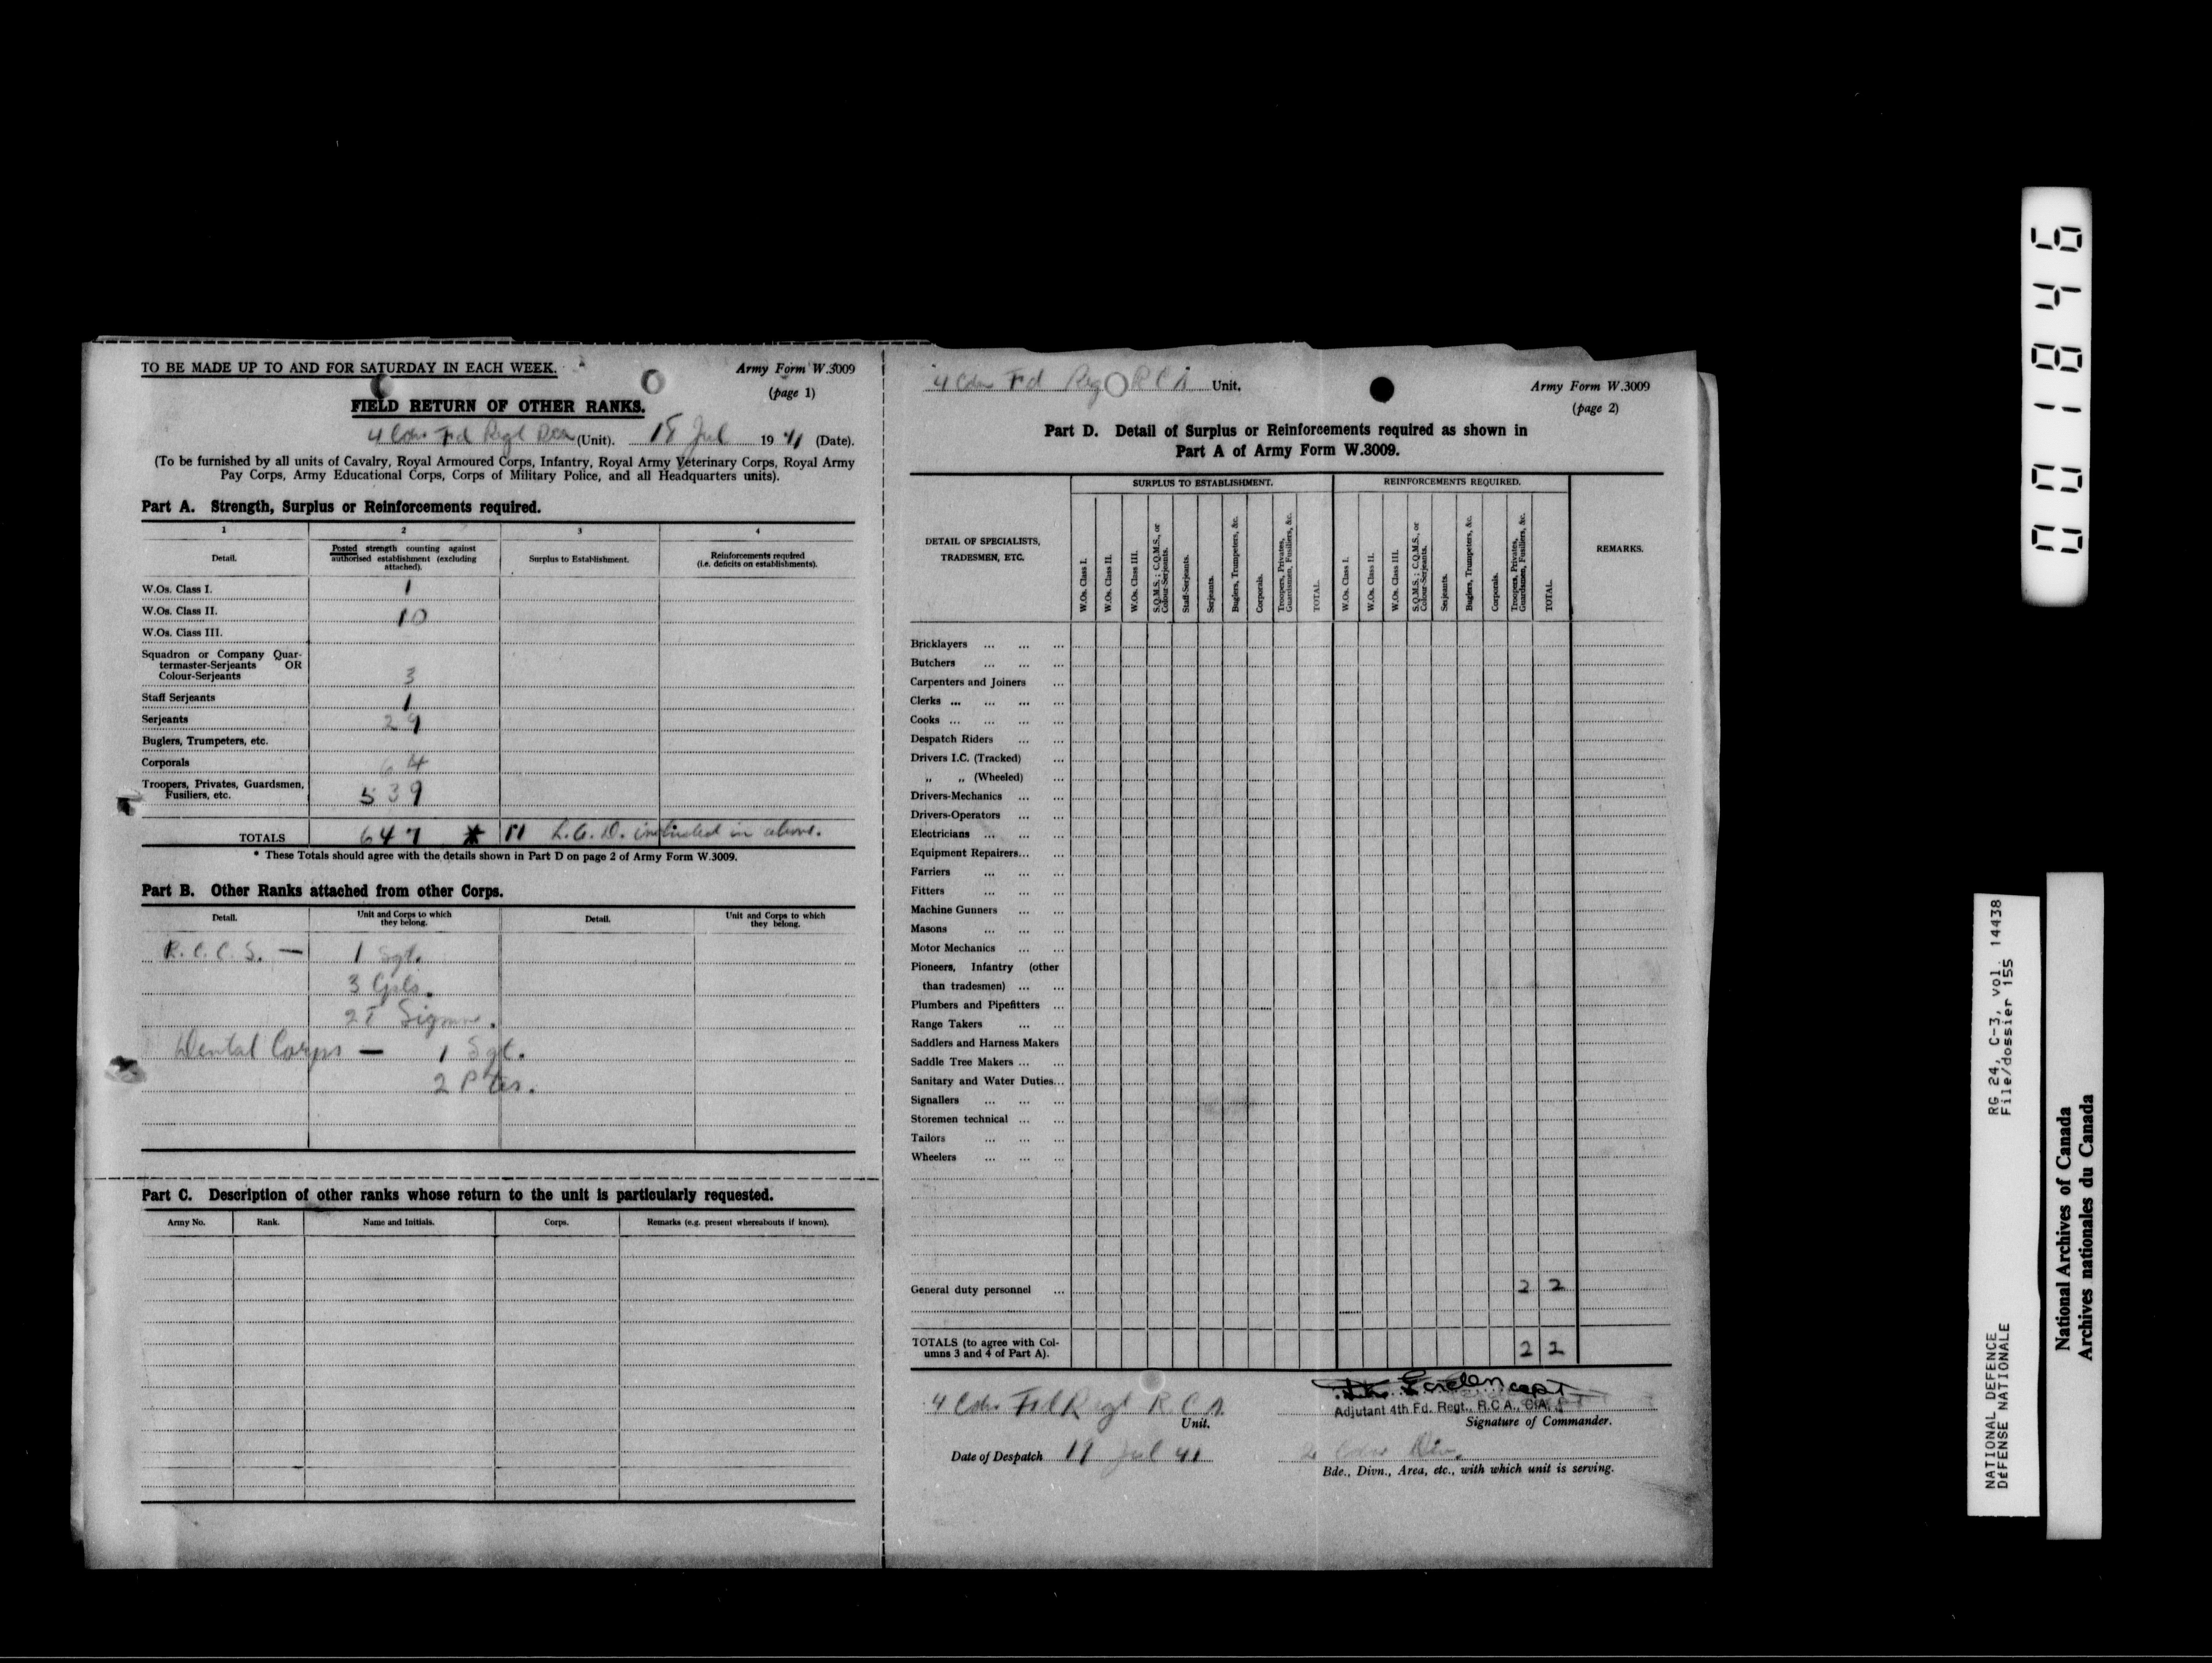 TO BE MADE UP TO AND FOR SATURDAY IN EACH WEEK.
Army Form W.3009
(page 1)
FIELD RETURN OF OTHER RANKS.
4 Cdn Fd Regt RCA (Unit). 18 Jul 19 41 (Date).
(To be furnished by all units of Cavalry, Royal Armoured Corps, Infantry, Royal Army Veterinary Corps, Royal Army
Pay Corps, Army Educational Corps, Corps of Military Police, and all Headquarters units).
Part A. Strength, Surplus or Reinforcements required.
1 2 3 4
Detail.
Posted strength counting against
authorised establishment (excluding
attached).
Surplus to Establishment.
Reinforcements required
(i.e. deficits on establishments).
W.Os. Class I. 1
W.Os. Class II. 10
W.Os. Class III.
Squadron or Company Quar-
termaster-Serjeants OR
Colour-Serjeants 3
Staff Serjeants 1
Serjeants 29
Buglers, Trumpeters, etc.
Corporals 64
Troopers, Privates, Guardsmen,
Fusiliers, etc. 539
TOTALS 647 * 11 L.A.D. included in above.
* These Totals should agree with the details shown in Part D on page 2 of Army Form W.3009.
Part B. Other Ranks attached from other Corps.
Detail.
Unit and Corps to which
they belong.
Detail.
Unit and Corps to which
they belong.
R.C.C.S. — 1 Sgt.
3 Cpls.
Dental Corps — 1 Sgt.
2 Ptes.
Part C. Description of other ranks whose return to the unit is particularly requested.
Army No. Rank. Name and Initials. Corps. Remarks (e.g. present whereabouts if known).
4 Cdn Fd Regt RCA Unit.
Army Form W.3009
(page 2)
Part D. Detail of Surplus or Reinforcements required as shown in
Part A of Army Form W.3009.
DETAIL OF SPECIALISTS,
TRADESMEN, ETC.
SURPLUS TO ESTABLISHMENT.
W.Os. Class I.
W.Os. Class II.
W.Os. Class III.
S.Q.M.S.; C.Q.M.S., or
Colour-Serjeants.
Staff-Serjeants.
Serjeants.
Buglers, Trumpeters, &c.
Corporals.
Troopers, Privates,
Guardsmen, Fusiliers, &c.
TOTAL.
REINFORCEMENTS REQUIRED.
W.Os. Class I.
W.Os. Class II.
W.Os. Class III.
S.Q.M.S.; C.Q.M.S., or
Colour-Serjeants.
Serjeants.
Buglers, Trumpeters, &c.
Corporals.
Troopers, Privates,
Guardsmen, Fusiliers, &c.
TOTAL.
REMARKS.
Bricklayers ... ... ...
Butchers ... ... ...
Carpenters and Joiners ...
Clerks ... ... ... ...
Cooks ... ... ... ...
Despatch Riders ... ...
Drivers I.C. (Tracked) ...
„ „ (Wheeled) ...
Drivers-Mechanics ... ...
Drivers-Operators ... ...
Electricians ... ... ...
Equipment Repairers... ...
Farriers ... ... ...
Fitters ... ... ...
Machine Gunners ... ...
Masons ... ... ...
Motor Mechanics ... ...
Pioneers, Infantry (other
than tradesmen) ... ...
Plumbers and Pipefitters ...
Range Takers ... ...
Saddlers and Harness Makers
Saddle Tree Makers ... ...
Sanitary and Water Duties...
Signallers ... ... ...
Storemen technical ... ...
Tailors ... ... ...
Wheelers ... ... ...
General duty personnel ... 2 2
TOTALS (to agree with Col-
umns 3 and 4 of Part A). 2 2
4 Cdn Fd Regt R.C.A.
Unit.
Capt
Adjutant 4th Fd. Regt., R.C.A., C.A.
Signature of Commander.
Date of Despatch 19 Jul 41
2 Cdn Div.
Bde., Divn., Area, etc., with which unit is serving.
001846
NATIONAL DEFENCE RG 24, C-3, vol. 14438
DéFENSE NATIONALE File/dossier 155
National Archives of Canada
Archives nationales du Canada